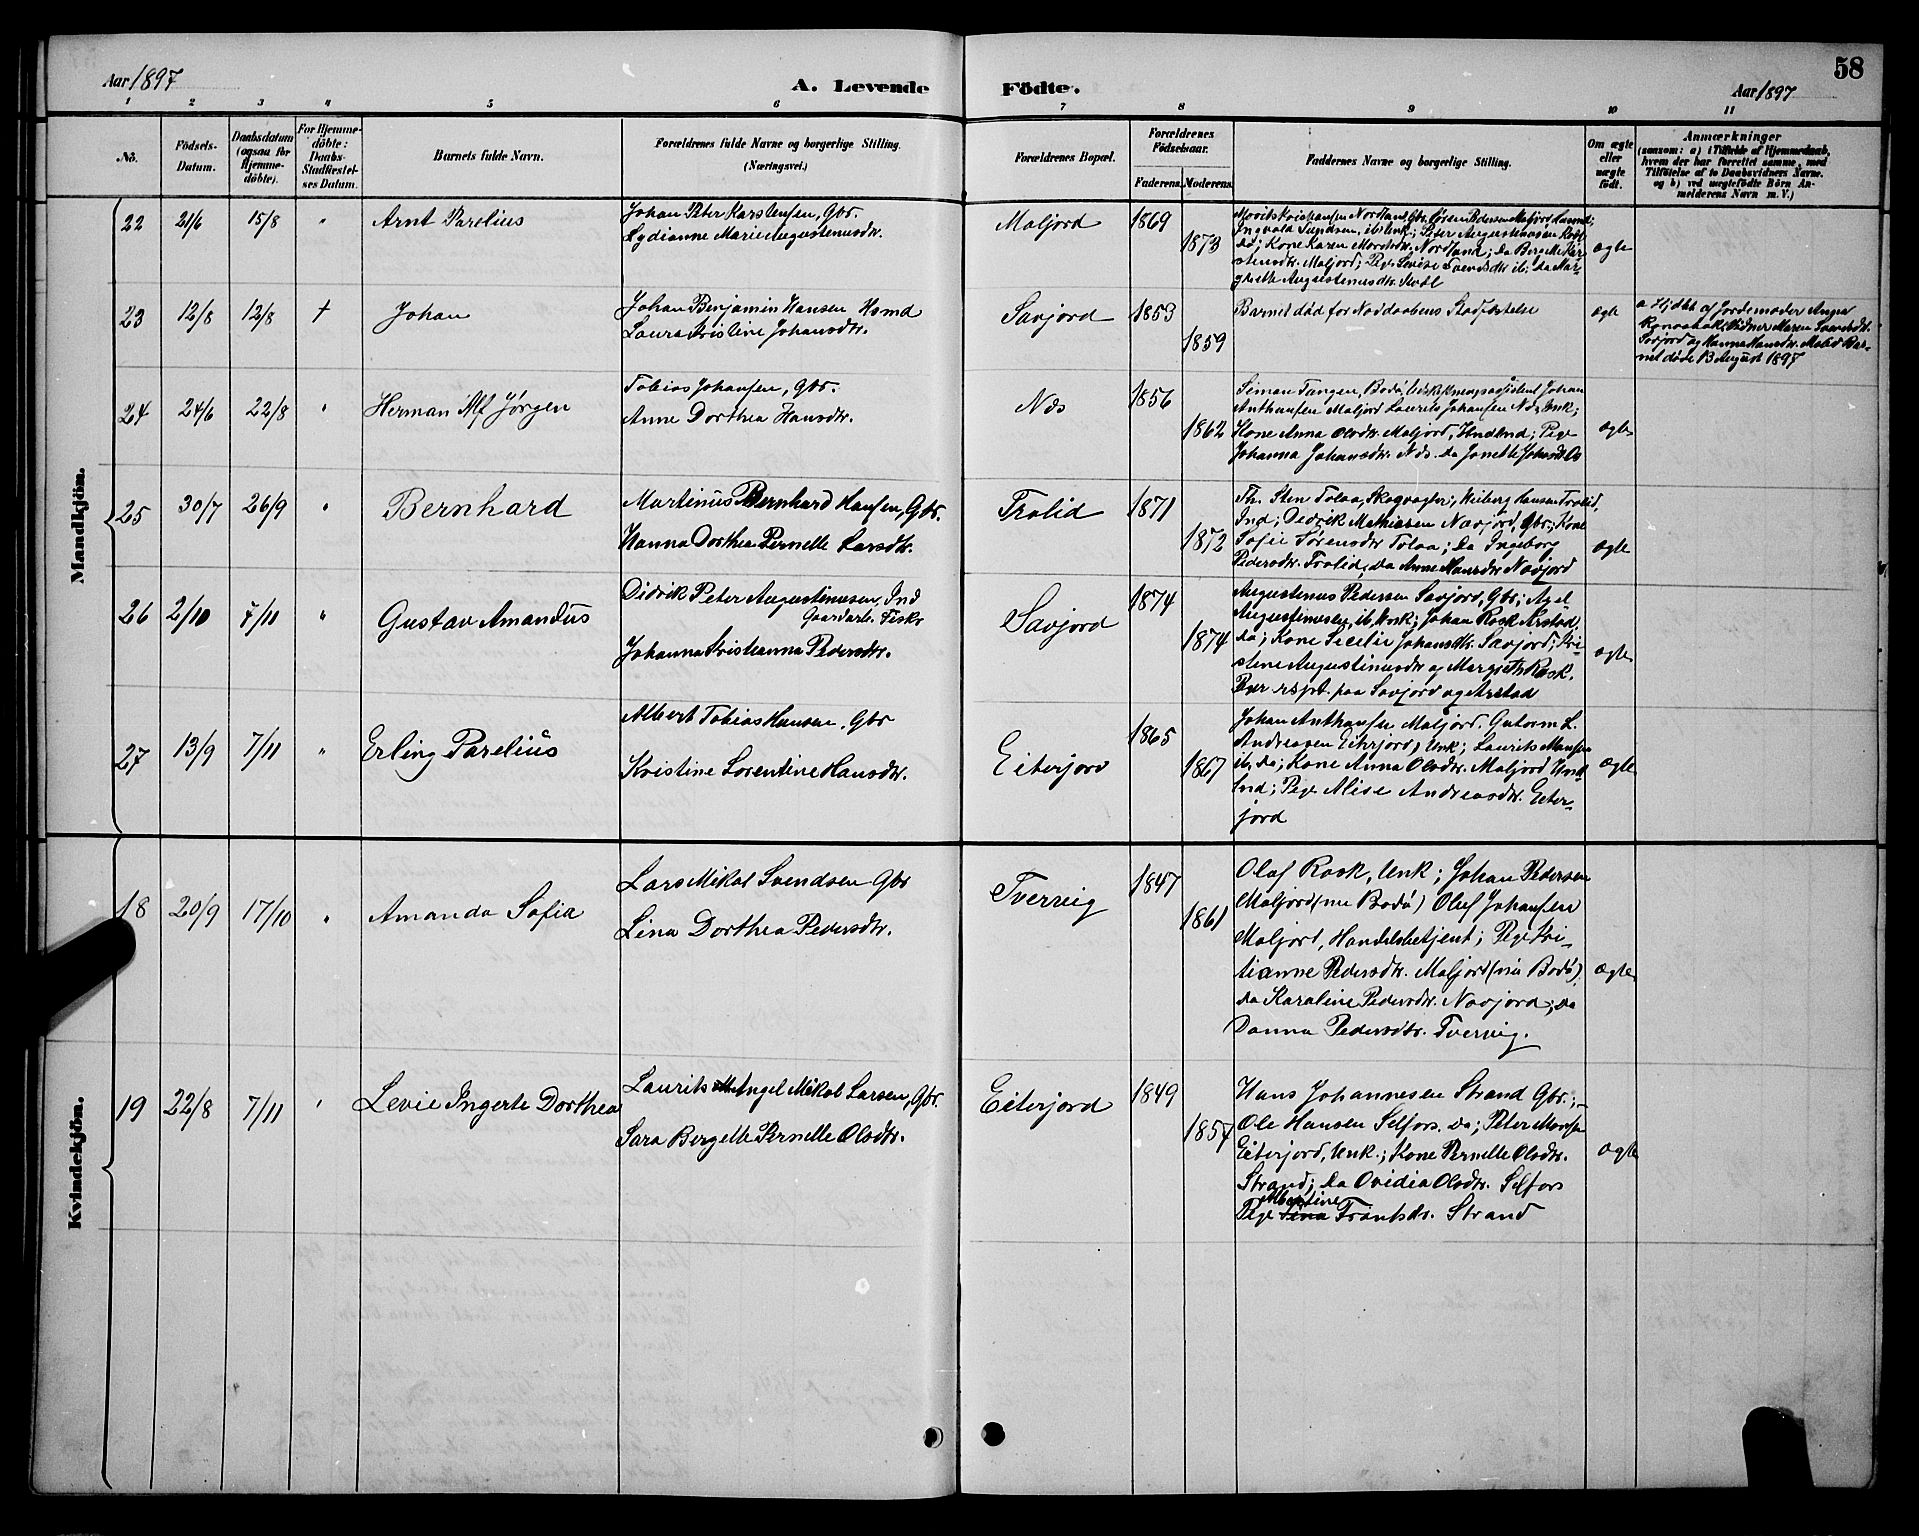 Aar 1897
A. Levende
Födte.
Aar 1897
58
1 2 3 4 5 6 7 8 9 10 11
No.
Födsels-Datum.
Daabsdatum (ogsaa for Hjemme-döbte).
For Hjemme-döbte: Daabs-Stadfæstel-ses Datum.
Barnets fulde Navn.
Forældrenes fulde Navne og borgerlige Stilling. (Næringsvei.)
Forældrenes Bopæl.
Forældrenes Födselsaar.
Faderens. Moderens.
Faddernes Navne og borgerlige Stilling.
Om ægte eller uægte födt.
Anmærkninger
(saasom: a) i Tilfælde af Hjemmedaab, hvem der har forrettet samme, med Tilföielse af to Daabsvidners Navne. og b) ved uægtefödte Börn An-melderens Navn m. V.)
Mandkjön.
22 21/6 15/8 " Arnt Parelius
Johan Peter Karstensen, Gbr.
Lydianne Marie Augustenusdtr.
Maljord 1869
1873
Ingvald Svendsen, ib Unk.; Peter Augustinussen
da; Kone Karen
Maljord; Pige Lovise Svendsdtr ib; da Mar-
grethe Augustenusdtr.
ægte
23 12/8 12/8 † Johan
Johan Benjamin Hansen Hsmd
Laura Kristine Johansdtr.
Savjord 1853
1859
Barnet död før Nöddaabens Stadfæstelse
ægte
a Hjdbt af Jordemoder
Vidner Maren
Savjord og Hanna Hansdtr. Bar-
net döde 13 August 1897
24 24/6 22/8 " Herman Alf Jørgen
Tobias Johansen, Gbr.
Anne Dorthea Hansdtr.
Nds 1856
1862
Simon Tangen, Bodö, Johan
Anthonsen Maljord Laurits Johansen Nds, Unk;
Kone Anna Olsdtr. Maljord, Hndlnd; Pige
Johanna Johansdtr. Nds. da Janette
ægte
25 30/7 26/9 " Bernhard
Martinus Bernhard Hansen, Gbr.
Hanna Dorthea Pernelle Larsdtr.
Trolid 1871
1872
Th. Sten Tolaa, Skogvogter; Wiberg Hansen Trolid,
Ind; Didrik Mathiasen Navjord, Gbr; Kone
Sofie Sørensdtr Tolaa; da Ingeborg
Pedersdtr. Trolid; da Anne Hansdtr Navjord
ægte
26 2/10 7/11 " Gustav Amandus
Didrik Peter Augustinussen, Ind
Gaardarb. Fisker
Johanna Kristianna Pedersdtr.
Savjord 1874
1874
Augustenus Pedersen Savjord, Gbr; Axel
Augustinussen, ib, Unk; Johan Rosk Arstad,
da; Kone Secelie Johansdtr. Savjord; Kri-
stene Augustinusdtr og Margreth Rosk.
Piger respt. paa Savjord og Arstad
ægte
27 13/9 7/11 " Erling Parelius
Albert Tobias Hansen, Gbr
Kristine Lorentine Hansdtr.
Eiterjord 1865
1867
Johan Anthonsen Maljord, Gutorm L.
Andreasen Eiterjord, Unk; Laurits Hansen
ib, da; Kone Anna Olsdtr. Maljord Hndl
Ind; Pige Alise Andreasdtr. Eiter-
jord
ægte
Kvindekjön.
18 20/9 17/10 " Amanda Sofia
Lars Mikal Svendsen Gbr
Lina Dorthea Pedersdtr.
Tvervig 1847
1861
Olaf Rosk, Unk; Johan Pedersen
Maljord (nu Bodö) Oluf Johansen
Maljord, Handelsbetjent; Pige Kri-
stianne Pedersdtr. Maljord (nu Bodö),
da Karaline Pedersdtr. Navjord; da
Danna Pedersdtr. Tvervig.
ægte
19 22/8 7/11 " Levie Ingerte Dorthea
Laurits Angel Mikal Larsen, Gbr.
Sara Bergette Pernelle Olsdtr.
Eiterjord 1849
1857
Hans Johannesen Strand Gbr.;
Ole Hansen Selfors. da; Peter Monsen
Eiterjord, Unk.; Kone Pernelle Olsdtr.
Strand; da Ovidia Olsdtr. Selfors
Albertine
Pige Frantsdr. Strand
ægte